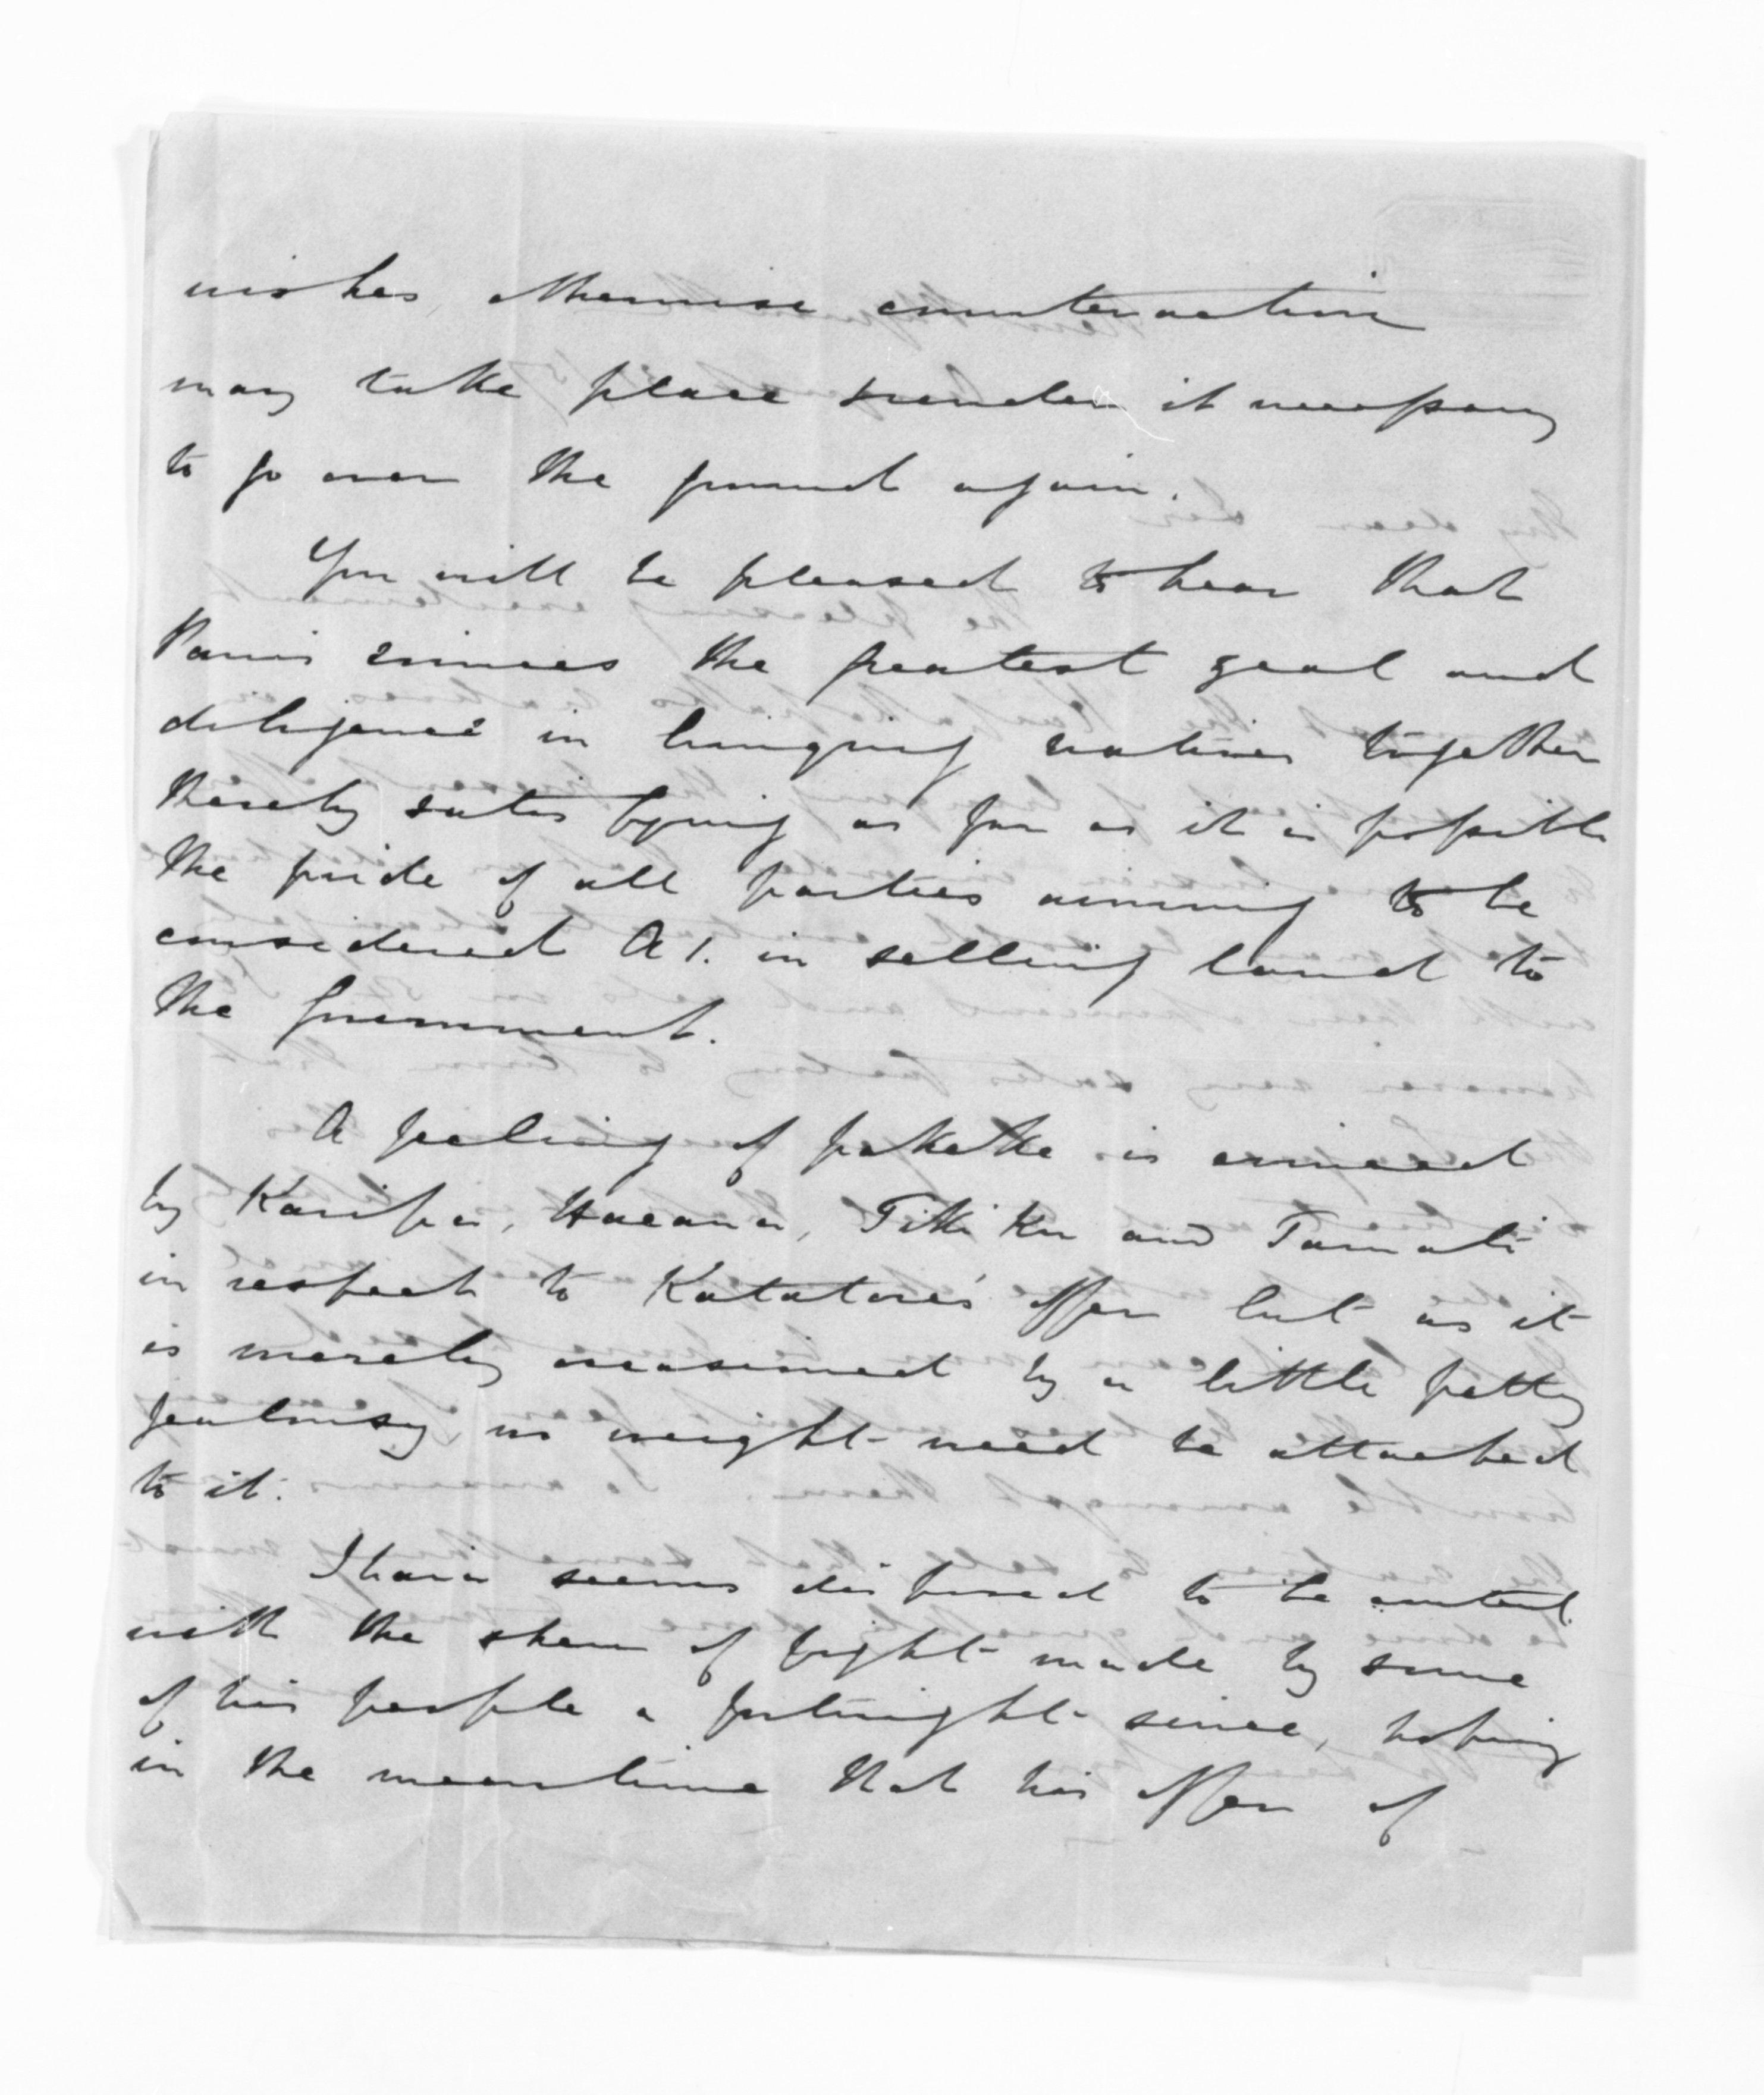 wishes, otherwise counteraction
may take place & render it necessary
to go over the ground again.
You will be pleased to hear that
Parris evinces the greatest zeal and
diligence in bringing natives together
thereby satisfying as far as it is possible
the pride of all parties aiming to be
considered A1. in selling land to
the Government.
A feeling of pakeke is evinced
by Karipa, Haeana, Tikiku and Tamati
in respect to Katatore's offer but as it
is merely occasioned by a little petty
jealousy, no weight need be attached
to it.
Ihaia seems disposed to be content
with the shew of fight made by some
of his people a fortnight since, hoping
in the meantime that his offer of